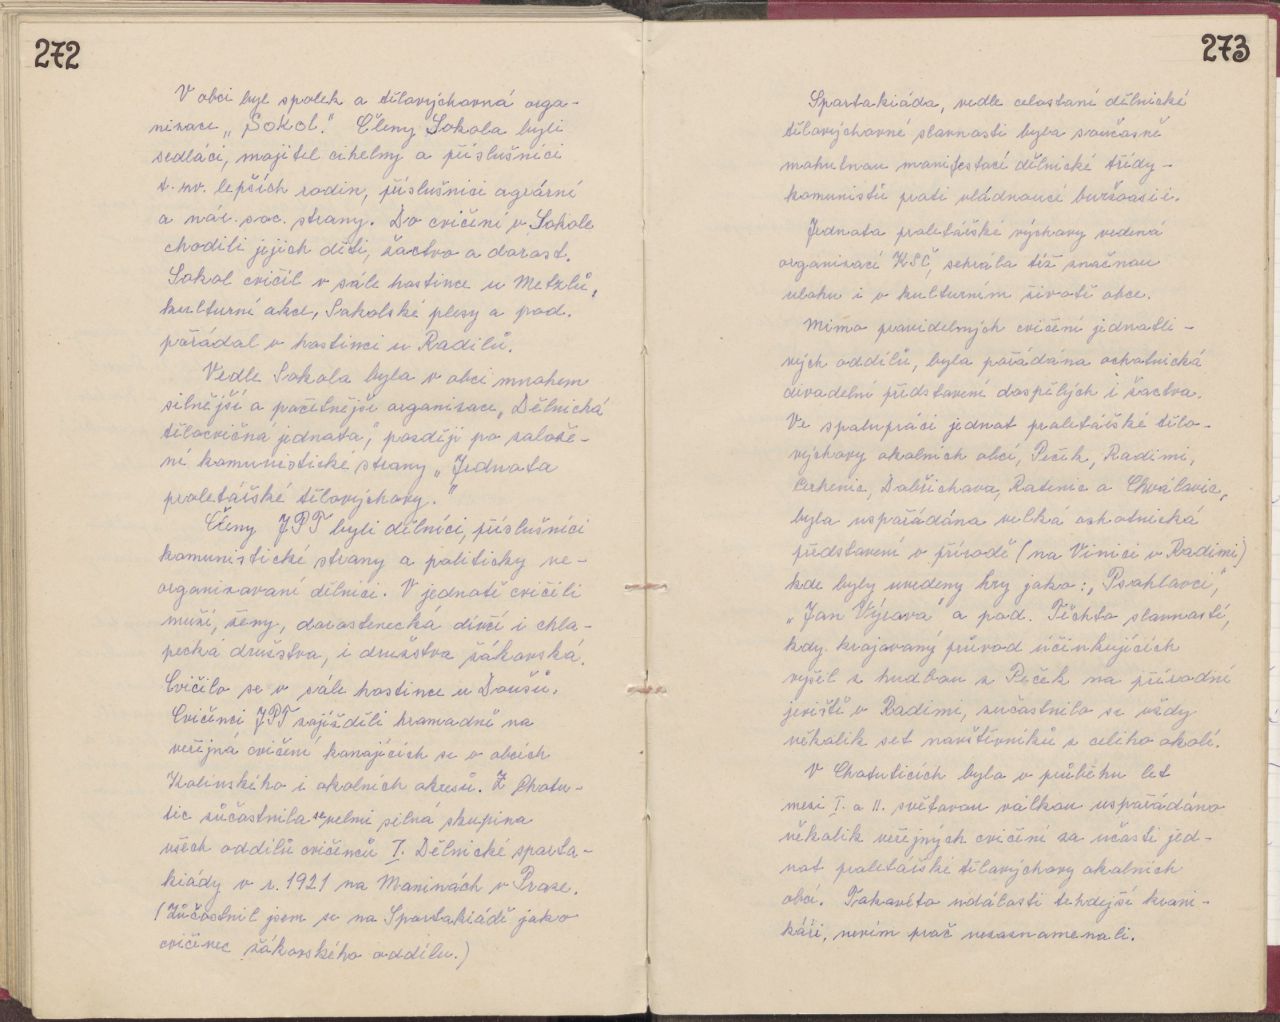 272
V obci byl spolek a tělovýchovná orga-
nizace „Sokol." Členy Sokola byli
sedláci, majitel cihelny a příslušníci
t. zv. lepších rodin, příslušníci agrární
a nár. soc. strany. Do cvičení v Sokole
chodili jejich děti, žactvo a dorost.
Sokol cvičil v sále hostince u Metzlů,
kulturní akce, Sokolské plesy a pod.
pořádal v hostinci u Radilů.
Vedle Sokola byla v obci mnohem
silnější a početnější organizace „Dělnická
tělocvičná jednota", později po založe-
ní komunistické strany „Jednota
proletářské tělovýchovy."
Členy JPT byli dělníci, příslušníci
komunistické strany a politicky ne-
organizovaní dělníci. V jednotě cvičili
muži, ženy, dorostenecká dívčí i chla-
pecká družstva, i družstva žákovská.
Cvičilo se v sále hostince u Doušů.
Cvičenci JPT zajížděli hromadně na
veřejná cvičení konajících se v obcích
Kolínského i okolních okresů. Z Chotu-
tic zúčastnila se velmi silná skupina
všech oddílů cvičenců I. Dělnické sparta-
kiády v r. 1921 na Maninách v Praze.
(Zúčastnil jsem se na Spartakiádě jako
cvičenec žákovského oddílu.)
273
Spartakiáda, vedle celostání dělnické
tělovýchovné slavnosti byla současně
mohutnou manifestací dělnické třídy-
komunistů proti vládnoucí buržoasii.
Jednota proletářské výchovy vedená
organizací KSČ, sehrála též značnou
úlohu i v kulturním životě obce.
Mimo pravidelných cvičení jednotli-
vých oddílů, byla pořádána ochotnická
divadelní představení dospělých i žactva.
Ve spolupráci jednot proletářské tělo-
výchovy okolních obcí, Peček, Radimi,
Cerhenic, Dobřichova, Ratenic a Chválovic,
byla uspořádána velká ochotnická
představení v přírodě (na Vinici v Radimi)
kde byly uvedeny hry jako: „Psohlavci,"
„Jan Výrava" a pod. Těchto slavností,
kdy krojovaný průvod účinkujících
vyšel s hudbou z Peček na přírodní
jeviště v Radimi, zúčastnilo se vždy
několik set navštěvníků z celého okolí.
V Chotuticích bylo v průběhu let
mezi I. a II. světovou válkou uspořádáno
několik veřejných cvičení za účasti jed-
not proletářské tělovýchovy okolních
obcí. Takovéto události tehdejší kroni-
káři, nevím proč nezaznamenali.